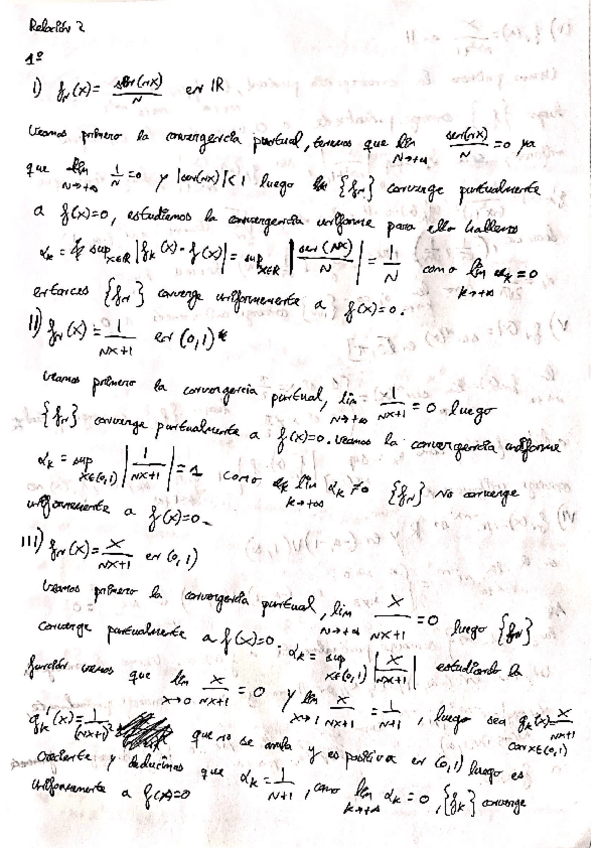 Relación 2
1º
I) f_N(x) = sen(nx)/N en ℝ
Veamos primero la convergencia puntual, tenemos que lim_{N→+∞} sen(nx)/N = 0 ya
que lim_{N→+∞} 1/N = 0 y |sen(nx)| < 1 luego {f_N} converge puntualmente
a f(x)=0, estudiemos la convergencia uniforme para ello hallemos
α_k = sup_{x∈ℝ} |f_k(x) - f(x)| = sup_{x∈ℝ} |sen(Nx)/N| = 1/N como lim_{k→+∞} α_k = 0
entonces {f_N} converge uniformemente a f(x)=0.
II) f_N(x) = 1/(Nx+1) en (0,1)
Veamos primero la convergencia puntual, lim_{N→+∞} 1/(Nx+1) = 0 luego
{f_N} converge puntualmente a f(x)=0. Veamos la convergencia uniforme
α_k = sup_{x∈(0,1)} |1/(Nx+1)| = 1 como lim_{k→+∞} α_k ≠ 0 {f_N} no converge
uniformemente a f(x)=0.
III) f_N(x) = x/(Nx+1) en (0,1)
Veamos primero la convergencia puntual, lim_{N→+∞} x/(Nx+1) = 0 luego {f_N}
converge puntualmente a f(x)=0; α_k = sup_{x∈(0,1)} |x/(Nx+1)| estudiando la
función vemos que lim_{x→0} x/(Nx+1) = 0 y lim_{x→1} x/(Nx+1) = 1/(N+1), luego sea g_k(x) = x/(Nx+1) con x∈(0,1)
g_k'(x) = 1/(Nx+1)² que no se anula y es positiva en (0,1) luego es
creciente y deducimos que α_k = 1/(N+1), como lim_{k→+∞} α_k = 0, {f_k} converge
uniformemente a f(x)=0